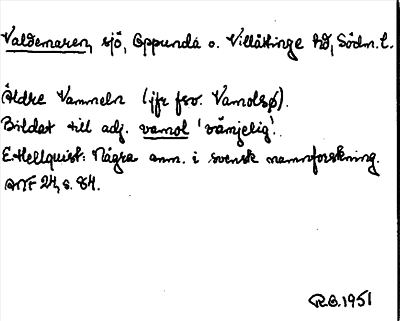 Valdemaren, sjö, Oppunda o. Villåttinge hd, Södm. l.
Äldre Vammeln (jfr fsv. Vamolsø).
Bildat till adj. vamol 'vämjelig'.
E. Hellquist: Några anm. i svensk namnforskning.
ANF 24, s. 84.
R.O. 1951